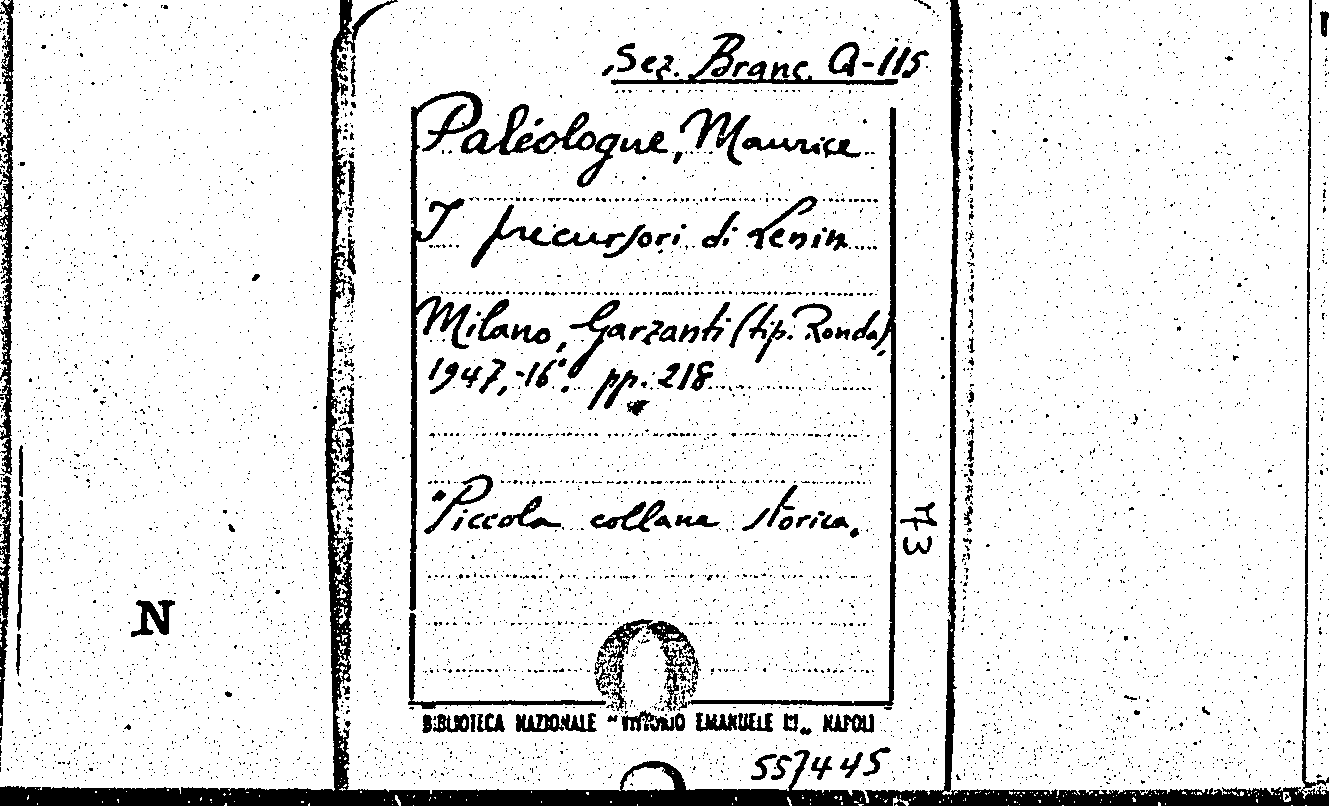 Sez. Branc. A-115
Paléologue, Maurice
I precursori di Lenin
Milano, Garzanti (tip. Ronda),
1947, -16°. pp. 218
"Piccola collana storica„
73
N
BIBLIOTECA NAZIONALE "VITTORIO EMANUELE III„ NAPOLI
557445